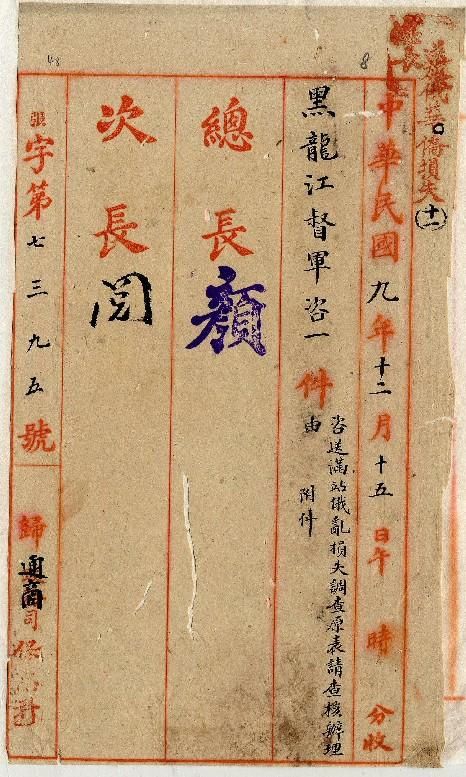 滿俄華僑損失
(十一)
中華民國九年十二月十五日午 時 分收
黑龍江督軍咨一件
咨送滿站俄亂損失調查原表請查核辦理
由
附件
總長
顏
次長
閱
張字第七三九五號
歸通商司
8
48